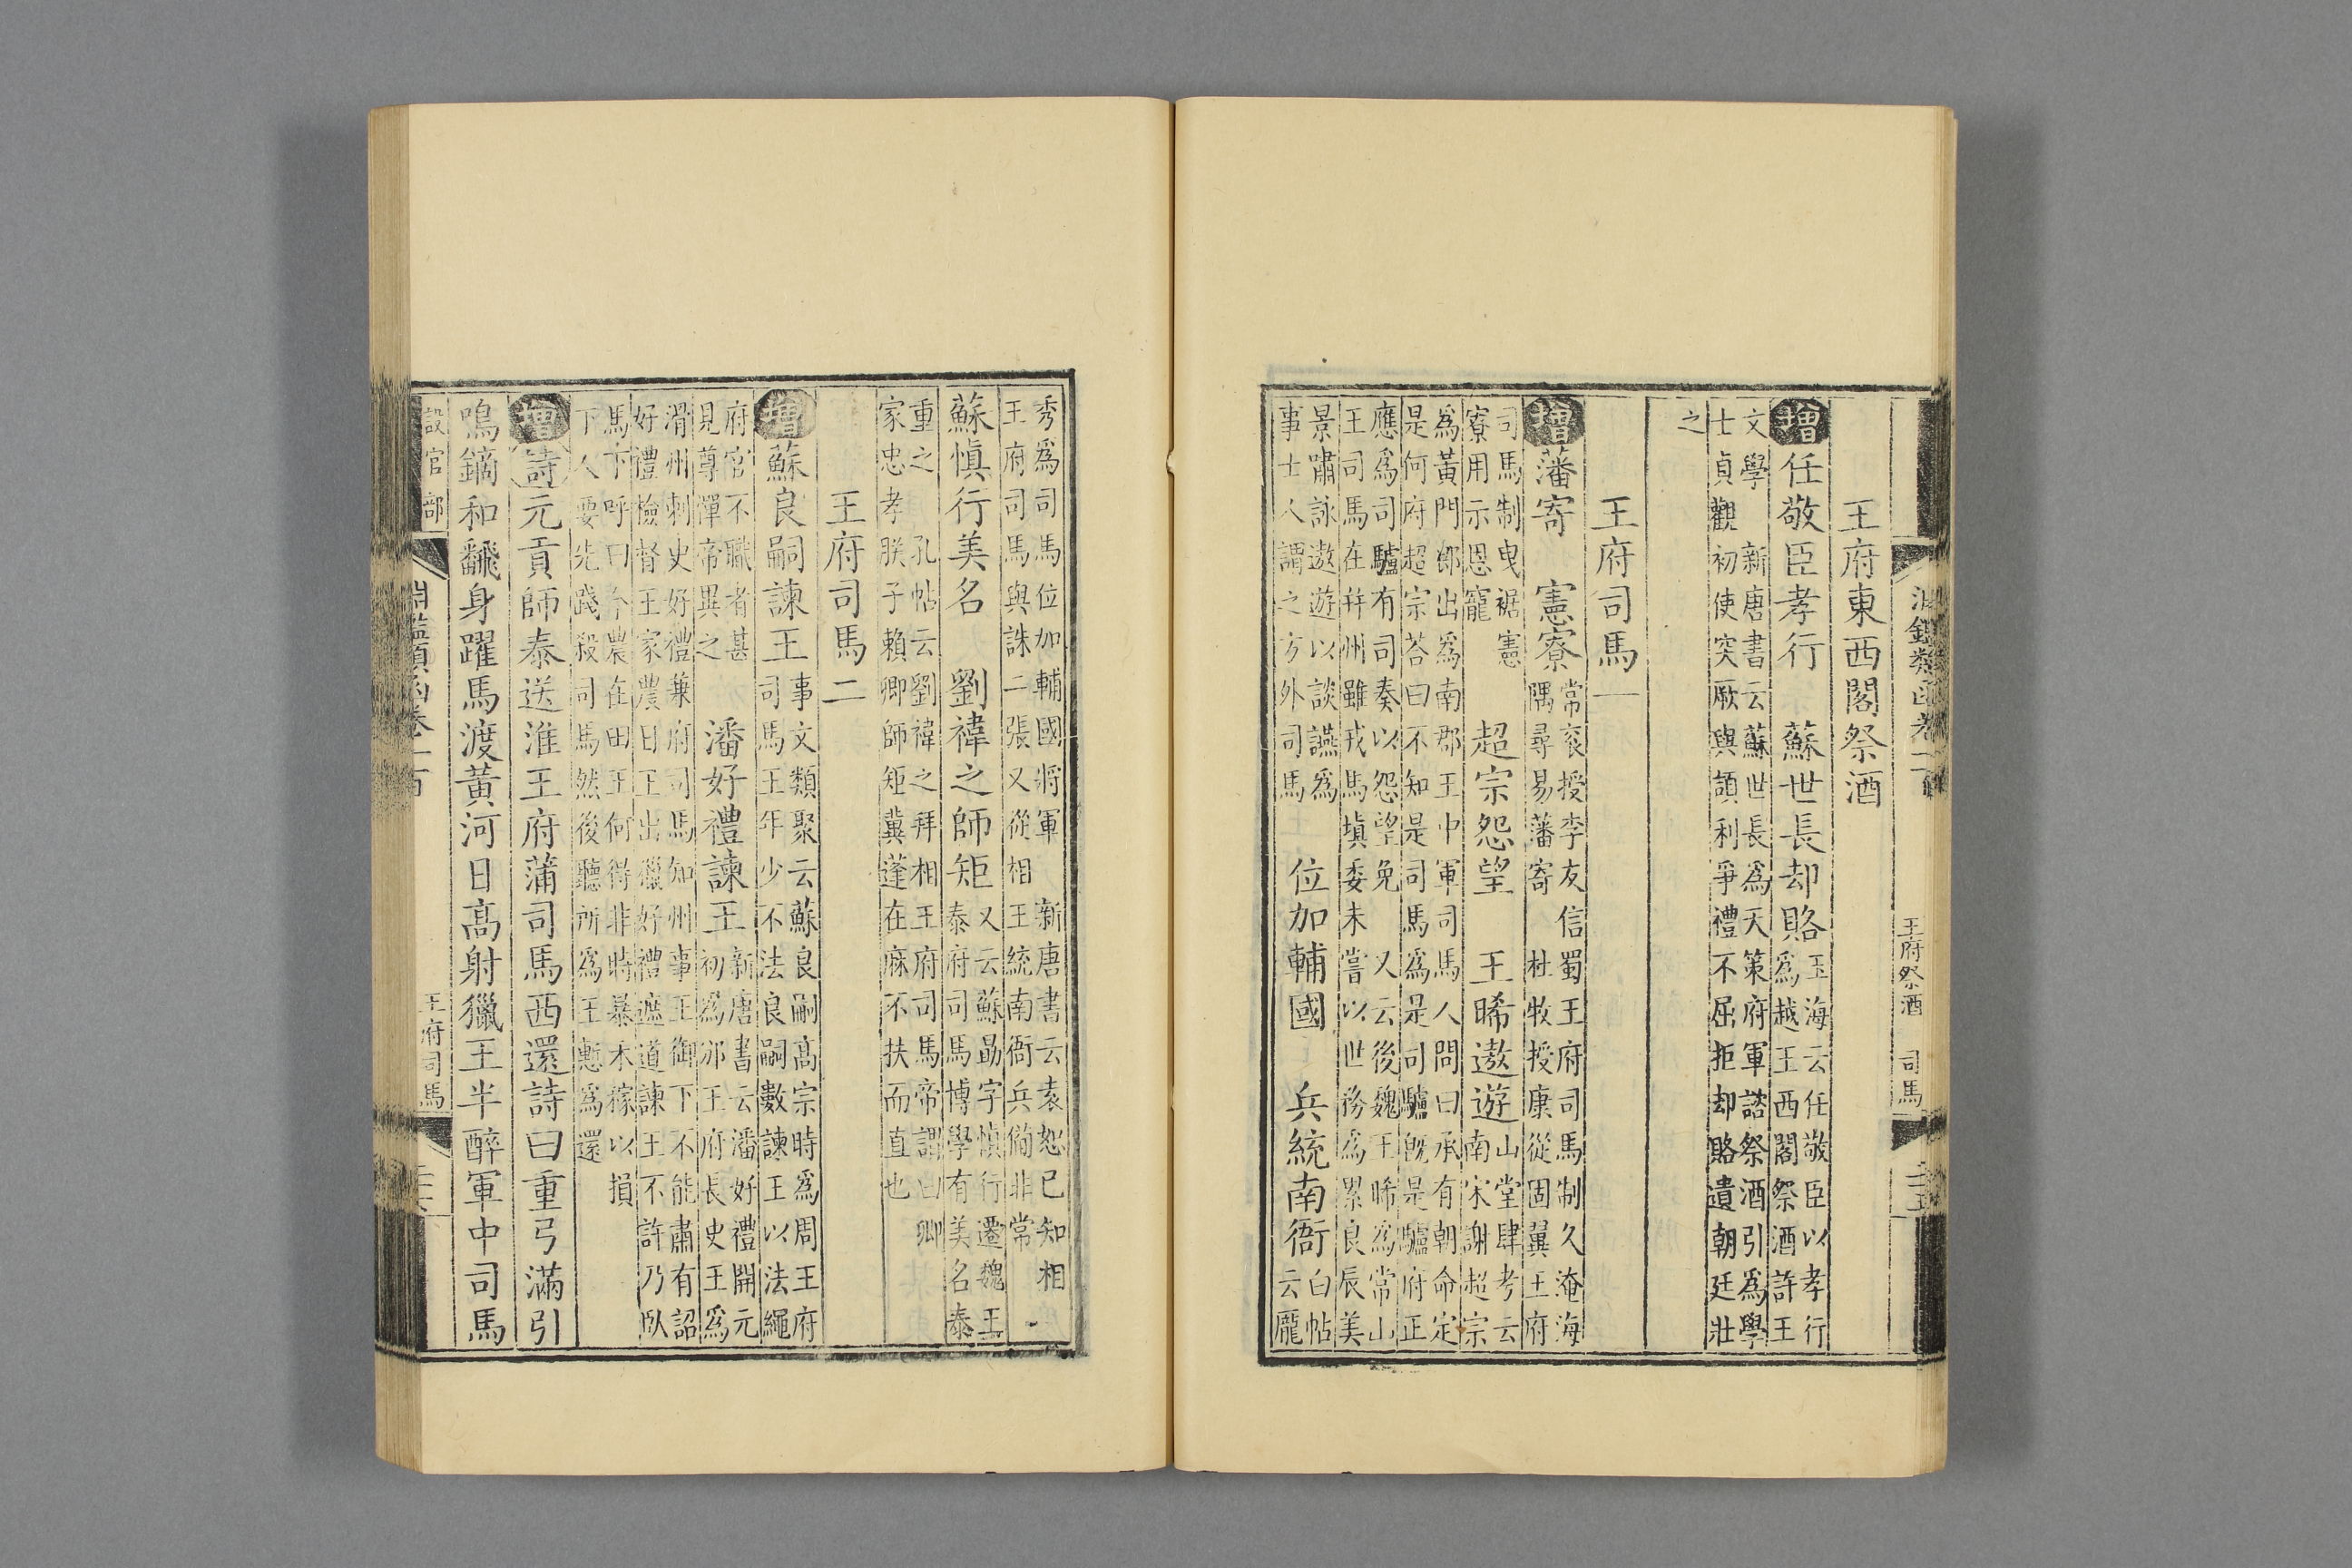 王府東西閣祭酒
增任敬臣孝行 蘇世長却賂玉海云任敬臣以孝行
為越王西閣祭酒許王
文學 新唐書云蘇世長為天策府軍諮祭酒引為學
士貞觀初使突厥與頡利爭禮不屈拒却賂遺朝廷壯
之
王府司馬一
增藩寄 憲寮常袞授李友信蜀王府司馬制久淹海
隅尋易藩寄 杜牧授康從固翼王府
司馬制曳裾憲
寮用示恩寵 超宗怨望 王晞遨遊山堂肆考云
南宋謝超宗
為黃門郎出為南郡王中軍司馬人問曰承有朝命定
是何府超宗荅曰不知是司馬為是司驢旣是驢府正
應為司驢有司奏以怨望免 又云後魏王晞為常山
王司馬在幷州雖戎馬塡委未嘗以世務為累良辰美
景嘯詠遨遊以談讌為
事士人謂之方外司馬 位加輔國 兵統南衙白帖
云龐
王府祭酒 司馬
秀為司馬位加輔國將軍 新唐書云袁恕已知相
王府司馬與誅二張又從相王統南衙兵備非常
蘇愼行美名 劉禕之師矩又云蘇勗字愼行遷魏王
泰府司馬博學有美名泰
重之 孔帖云劉禕之拜相王府司馬帝謂曰卿
家忠孝朕子賴卿師矩冀蓬在麻不扶而直也
王府司馬二
增蘇良嗣諫王事文類聚云蘇良嗣高宗時為周王府
司馬王年少不法良嗣數諫王以法繩
府官不職者甚
見尊憚帝異之 潘好禮諫王新唐書云潘好禮開元
初為邠王府長史王為
滑州刺史好禮兼府司馬知州事王御下不能肅有詔
好禮檢督王家農日王出獵好禮遮道諫王不許乃臥
馬下呼曰今農在田王何得非時暴禾稼以損
下人要先踐殺司馬然後聽所為王慙為還
增詩元貢師泰送淮王府蒲司馬西還詩曰重弓滿引
鳴鏑和翻身躍馬渡黃河日高射獵王半醉軍中司馬
設官部
淵鑑類函卷一百
王府司馬